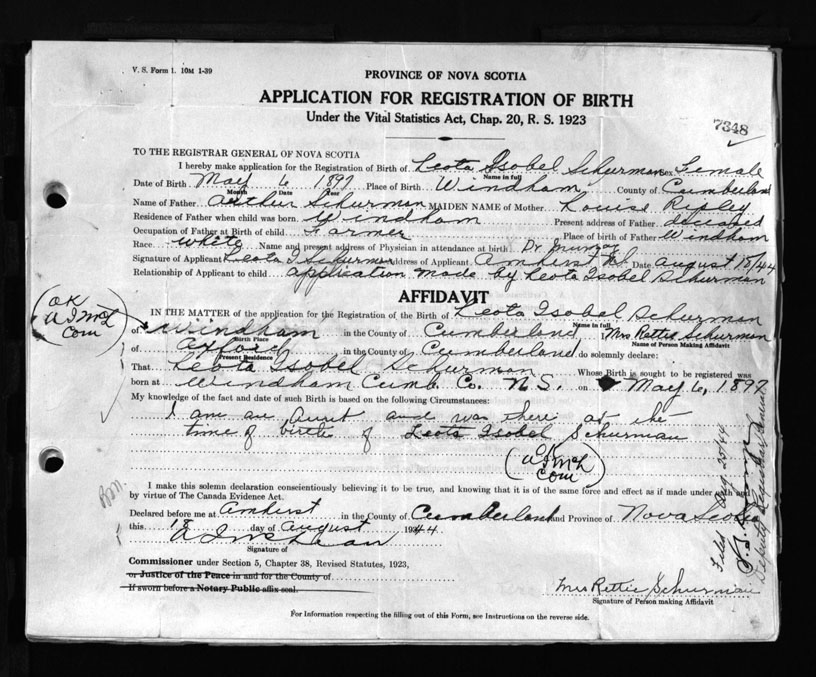 V. S. Form 1. 10M 1-39
PROVINCE OF NOVA SCOTIA
APPLICATION FOR REGISTRATION OF BIRTH
Under the Vital Statistics Act, Chap. 20, R. S. 1923
7348
TO THE REGISTRAR GENERAL OF NOVA SCOTIA
I hereby make application for the Registration of Birth of Leota Isobel Schurman Sex Female
Name in full
Date of Birth May 6 1897 Place of Birth Windham County of Cumberland
Month Date Year
Name of Father Arthur Schurman MAIDEN NAME of Mother Louise Ripley
Residence of Father when child was born Windham Present address of Father deceased
Occupation of Father at Birth of child Farmer Place of Birth of Father Windham
Race white Name and present address of Physician in attendance at birth Dr Munroy
Signature of Applicant Leota I Schurman Address of Applicant Amherst NS Date August 18/44
Relationship of Applicant to child application made by Leota Isobel Schurman
AFFIDAVIT
OK
COM
IN THE MATTER of the application for the Registration of the Birth of Leota Isobel Schurman
Name in full
of Windham in the County of Cumberland I Mrs Rettie Schurman
Birth Place Name of Person Making Affidavit
of Oxford in the County of Cumberland do solemnly declare:
Present Residence
That Leota Isobel Schurman Whose Birth is sought to be registered was
born at Windham Cumb. Co. N.S. on May 6, 1897
My knowledge of the fact and date of such Birth is based on the following Circumstances:
I am an Aunt and was there at the
time of birth of Leota Isobel Schurman
OK
COM
I make this solemn declaration conscientiously believing it to be true, and knowing that it is of the same force and effect as if made under oath and
by virtue of The Canada Evidence Act.
Declared before me at Amherst in the County of Cumberland and Province of Nova Scotia
this 18 day of August 1944.
Signature of
Commissioner under Section 5, Chapter 38, Revised Statutes, 1923,
or Justice of the Peace in and for the County of
If sworn before a Notary Public affix seal.
Mrs Rettie Schurman
Signature of Person making Affidavit
For Information respecting the filling out of this Form, see Instructions on the reverse side.
Filed Aug 25/44
Deputy Registrar General